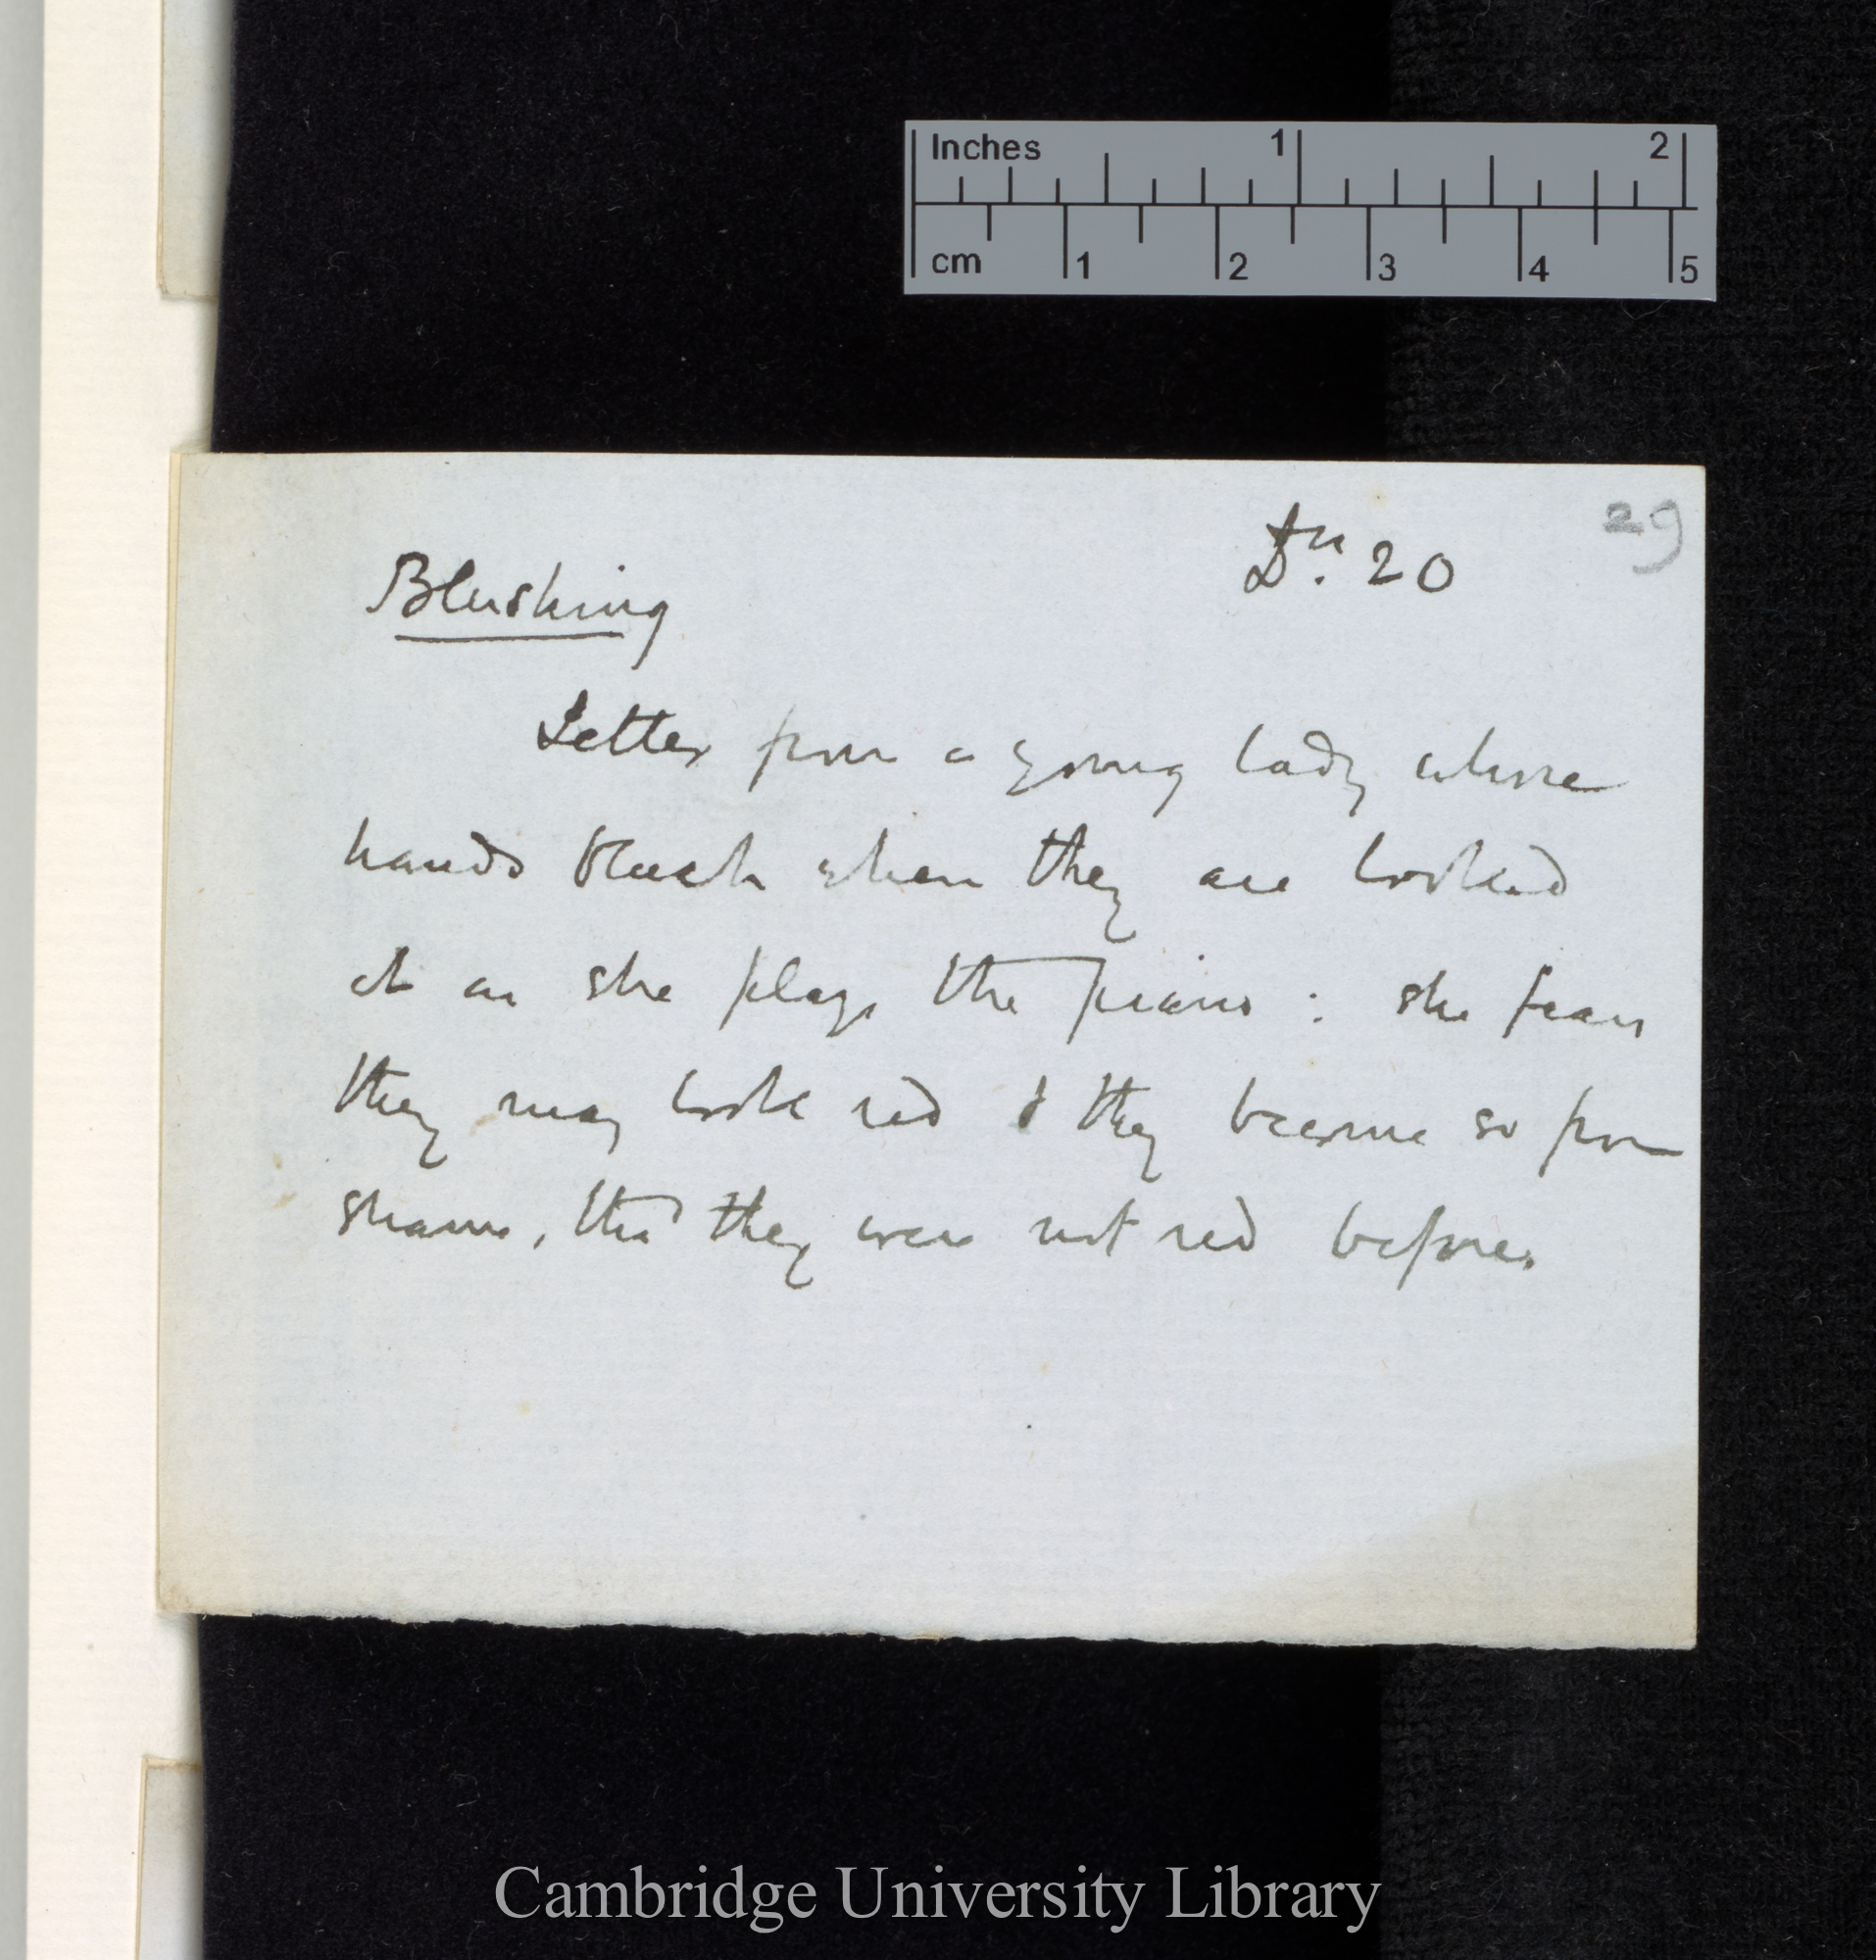 Inches 1 2
cm 1 2 3 4 5
29
Dr. 20
Blushing
Letter from a young lady whose
hands blush when they are looked
at as she plays the piano : she fears
they may look red & they become so from
shame, tho' they were not red before.
Cambridge University Library